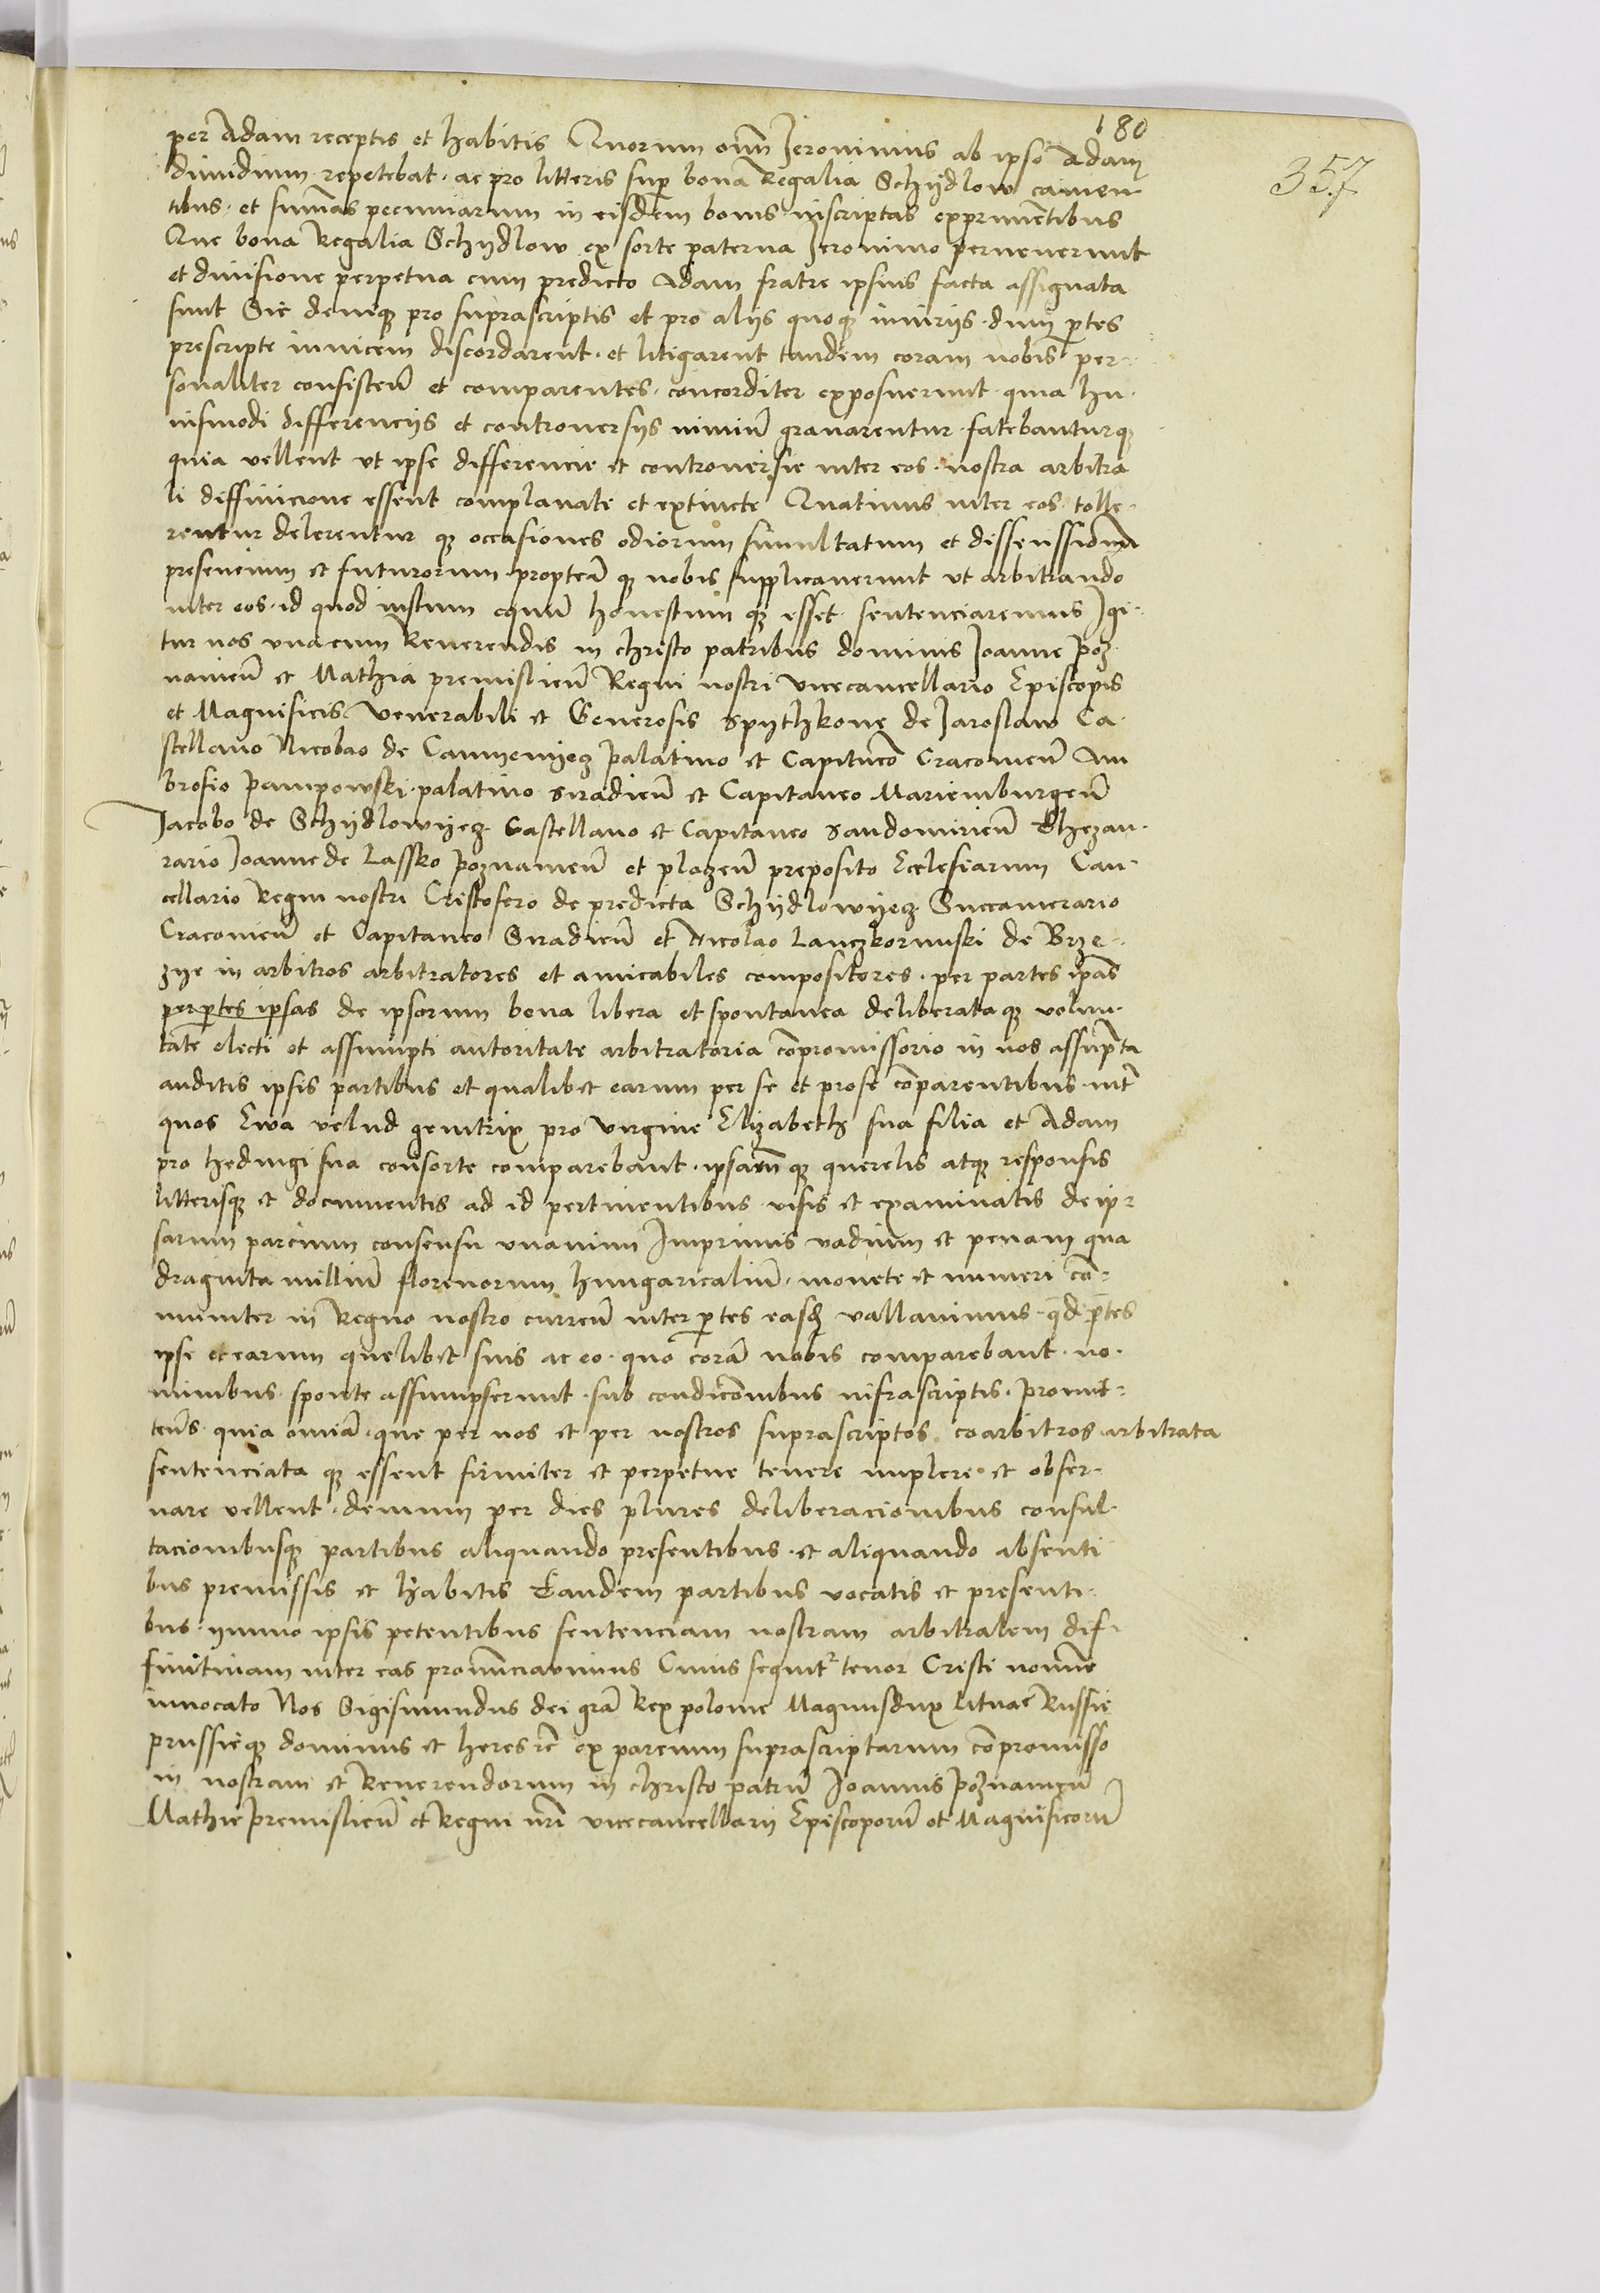 180
357
per Adam receptis et habitis Quorum omm̄ Jeronimus ab ipso Adam
dimidium repetebat. ac pro litteris sup bona Regalia Schydlow canen
tibus. et sum̄as pecuniarum in eisdem bonis inscriptas exprimētibus
Que bona Regalia Schydlow ex sorte paterna Jeronimo pervenerunt
et divisione perpetua cum predicto Adam fratre ipsius facta assignata
sunt Sic deniq pro suprascriptis et pro aliis quoq iniuriis. dum ptes
prescripte invicem discordarent. et litigarent tandem coram nobis per-
sonaliter consisteñ et comparentes. concorditer exposuerunt quia hu-
iusmodi differenciis et controversiis nimiū gravarentur. fatebanturq
quia vellent ut ipse differencie et controversie inter eos. nostra arbitra
li diffinicione essent complanate et extincte Quatinus inter eos tolle-
rentur delerentur q occasiones odiorum simultatum et dissenssionū
presencium et futurorum. propterā q nobis supplicaverunt ut arbitrando
inter eos. id quod iustum equū honestum q esset. sentenciaremus Igi-
tur nos unacum Reverendis in christo patribus dominis Joanne Poz
nanieñ et Mathia premislieñ Regni nostri Vicecancellario Episcopis
et Magnificis Venerabili et Generosis Spythkone de Jaroslaw Ca-
stellano Nicolao de Camyenyecz Palatino et Capitn̄eo Cracovieñ Am
brosio Pampowski. palatino Siradieñ et Capitaneo Mariemburgeñ
Jacobo de Schydlowyecz Castellano et Capitaneo Sandomirieñ Thezau-
rario Joanne de Lassko Poznanieñ et plozeñ preposito Ecclesiarum Can-
cellario Regni nostri Cristofero de predicta Schydlowyecz Succamerario
Cracovieñ et Capitaneo Siradieñ et Nicolao Lanczkorunski de Brze-
zye in arbitros arbitratores et amicabiles compositores. per partes ip̄as
per ptes ipsas de ipsorum bona libera et spontanea deliberata q volun-
tate electi et assumpti autoritate arbitratoria cōpromissorio in nos assūpta
auditis ipsis partibus et qualibet earum per se et pro se cōparentibus. int
quos Ewa velud genitrix pro virgine Elizabeth sua filia et Adam
pro Hedvigi sua consorte comparebant. ipsarū q querelis atq responsis
litterisq et documentis ad id pertinentibus visis et examinatis de ip-
sarum parcium consensu unanimi Imprimis vadium et penam qua
draginta milliū florenorum hungaricaliū. monete et numeri cō-
muniter in Regno nostro curreñ inter ptes easd vallavimus. qd ptes
ipse et earum quelibet suis ac eo. quo corā nobis comparebant. no-
minibus sponte assumpserunt. sub condicōnibus infrascriptis. Promit-
tens quia omīa. que per nos et per nostros suprascriptos coarbitros arbitrata
sentenciata q essent firmiter et perpetue tenere implere. et obser-
vare vellent. demum per dies plures deliberacionibus consul-
tacionibusq partibus aliquando presentibus. et aliquando absenti
bus premissis et habitis Tandem partibus vocatis et presenti-
bus. ymmo ipsis petentibus sentenciam nostram arbitralem dif-
finitivam inter eas pronunciavimus Cuius sequit tenor Cristi nomine
invocato Nos Sigismundus dei grā Rex polonie Magnus dux Lituae Russie
prussieq dominus et heres rē ex parcium suprascriptarum cōpromisso
in nostram et Reverendorum in christo patrū Joannis Poznanieñ
Mathie Premislieñ et Regni nr̄i vicecancellarii Episcoporū et Magnificorū